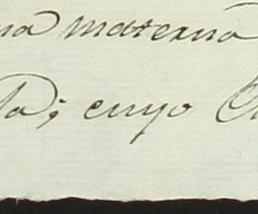 na materna
ta; cuyo